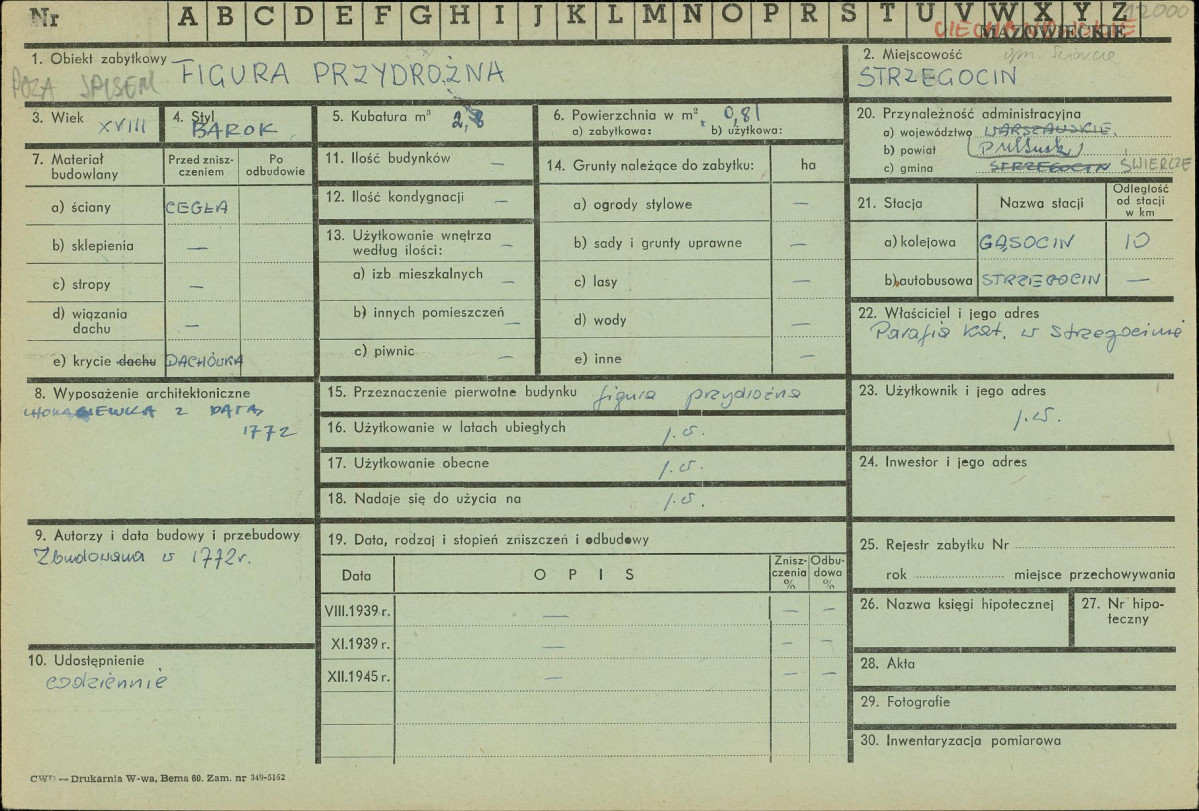 Nr A B C D E F G H I J K L M N O P R S T U V W X Y Z
12000
CIECHANOWSKIE
MAZOWIECKIE
1. Obiekt zabytkowy FIGURA PRZYDROŻNA
POZA SPISEM
2. Miejscowość
STRZEGOCIN
3. Wiek XVIII
4. Styl BAROK
5. Kubatura m³ 2,8
6. Powierzchnia w m² 0,81
a) zabytkowa: b) użytkowa:
20. Przynależność administracyjna
a) województwo WARSZAWSKIE
b) powiat Pułtusk
c) gmina STRZEGOCIN ŚWIERCZE
7. Materiał budowlany
Przed znisz-
czeniem
Po
odbudowie
a) ściany CEGŁA
b) sklepienia —
c) stropy —
d) wiązania
dachu —
e) krycie dachu DACHÓWKA
11. Ilość budynków —
12. Ilość kondygnacji —
13. Użytkowanie wnętrza
według ilości: —
a) izb mieszkalnych —
b) innych pomieszczeń —
c) piwnic —
14. Grunty należące do zabytku: ha
a) ogrody stylowe —
b) sady i grunty uprawne —
c) lasy —
d) wody —
e) inne —
21. Stacja Nazwa stacji
Odległość
od stacji
w km
a) kolejowa GĄSOCIN 10
b) autobusowa STRZEGOCIN —
22. Właściciel i jego adres
Parafia kat. w Strzegocinie
8. Wyposażenie architektoniczne
CHORĄGIEWKA Z DATĄ
1772
15. Przeznaczenie pierwotne budynku figura przydrożna
16. Użytkowanie w latach ubiegłych j.w.
17. Użytkowanie obecne j.w.
18. Nadaje się do użycia na j.w.
23. Użytkownik i jego adres
j.w.
24. Inwestor i jego adres
9. Autorzy i data budowy i przebudowy
Zbudowana w 1772r.
10. Udostępnienie
codziennie
19. Data, rodzaj i stopień zniszczeń i odbudowy
Data OPIS
Znisz-
czenia
%
Odbu-
dowa
%
VIII.1939 r. — — —
XI.1939 r. — — —
XII.1945 r. — — —
25. Rejestr zabytku Nr
rok miejsce przechowywania
26. Nazwa księgi hipotecznej
27. Nr hipo-
teczny
28. Akta
29. Fotografie
30. Inwentaryzacja pomiarowa
CWD — Drukarnia W-wa, Bema 60. Zam. nr 349-5162